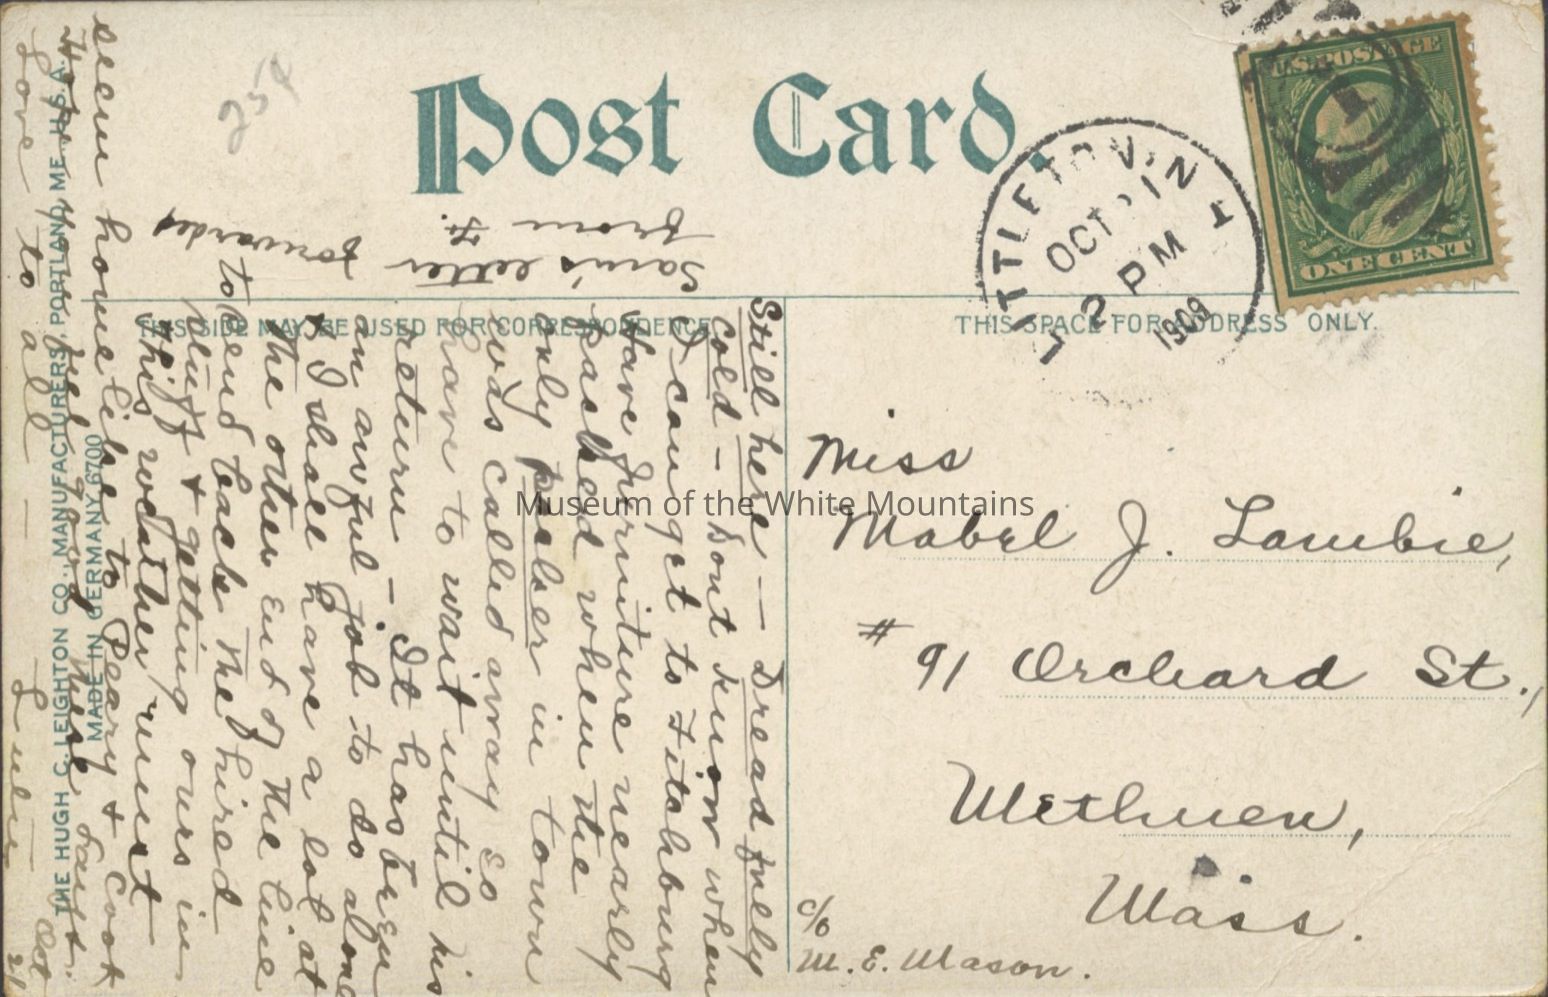 Post Card.
U.S. POSTAGE
1
ONE CENT
LITTLETON, N.H.
OCT 21
2 PM
1909
25¢
THIS SIDE MAY BE USED FOR CORRESPONDENCE.
THIS SPACE FOR ADDRESS ONLY.
Miss
Mabel J. Lambie,
# 91 Orchard St.,
Methuen,
Mass.
c/o
M. E. Mason.
Still here — Dreadfully
cold — Dont know when
I can get to Fitchburg
Have furniture nearly
packed when the
only packer in town
was called away so
have to wait until his
return — It has been
an awful job to do alone
& I shall have a lot at
the other end of the line
to send back the hired
stuff & getting ours in
This weather must
seem home like to Peary & Cook
Love to all —
Oct 21
forwarded
Sara's letter
from F.
THE HUGH C. LEIGHTON CO., MANUFACTURERS, PORTLAND, ME. U.S.A.
MADE IN GERMANY 6700
Museum of the White Mountains